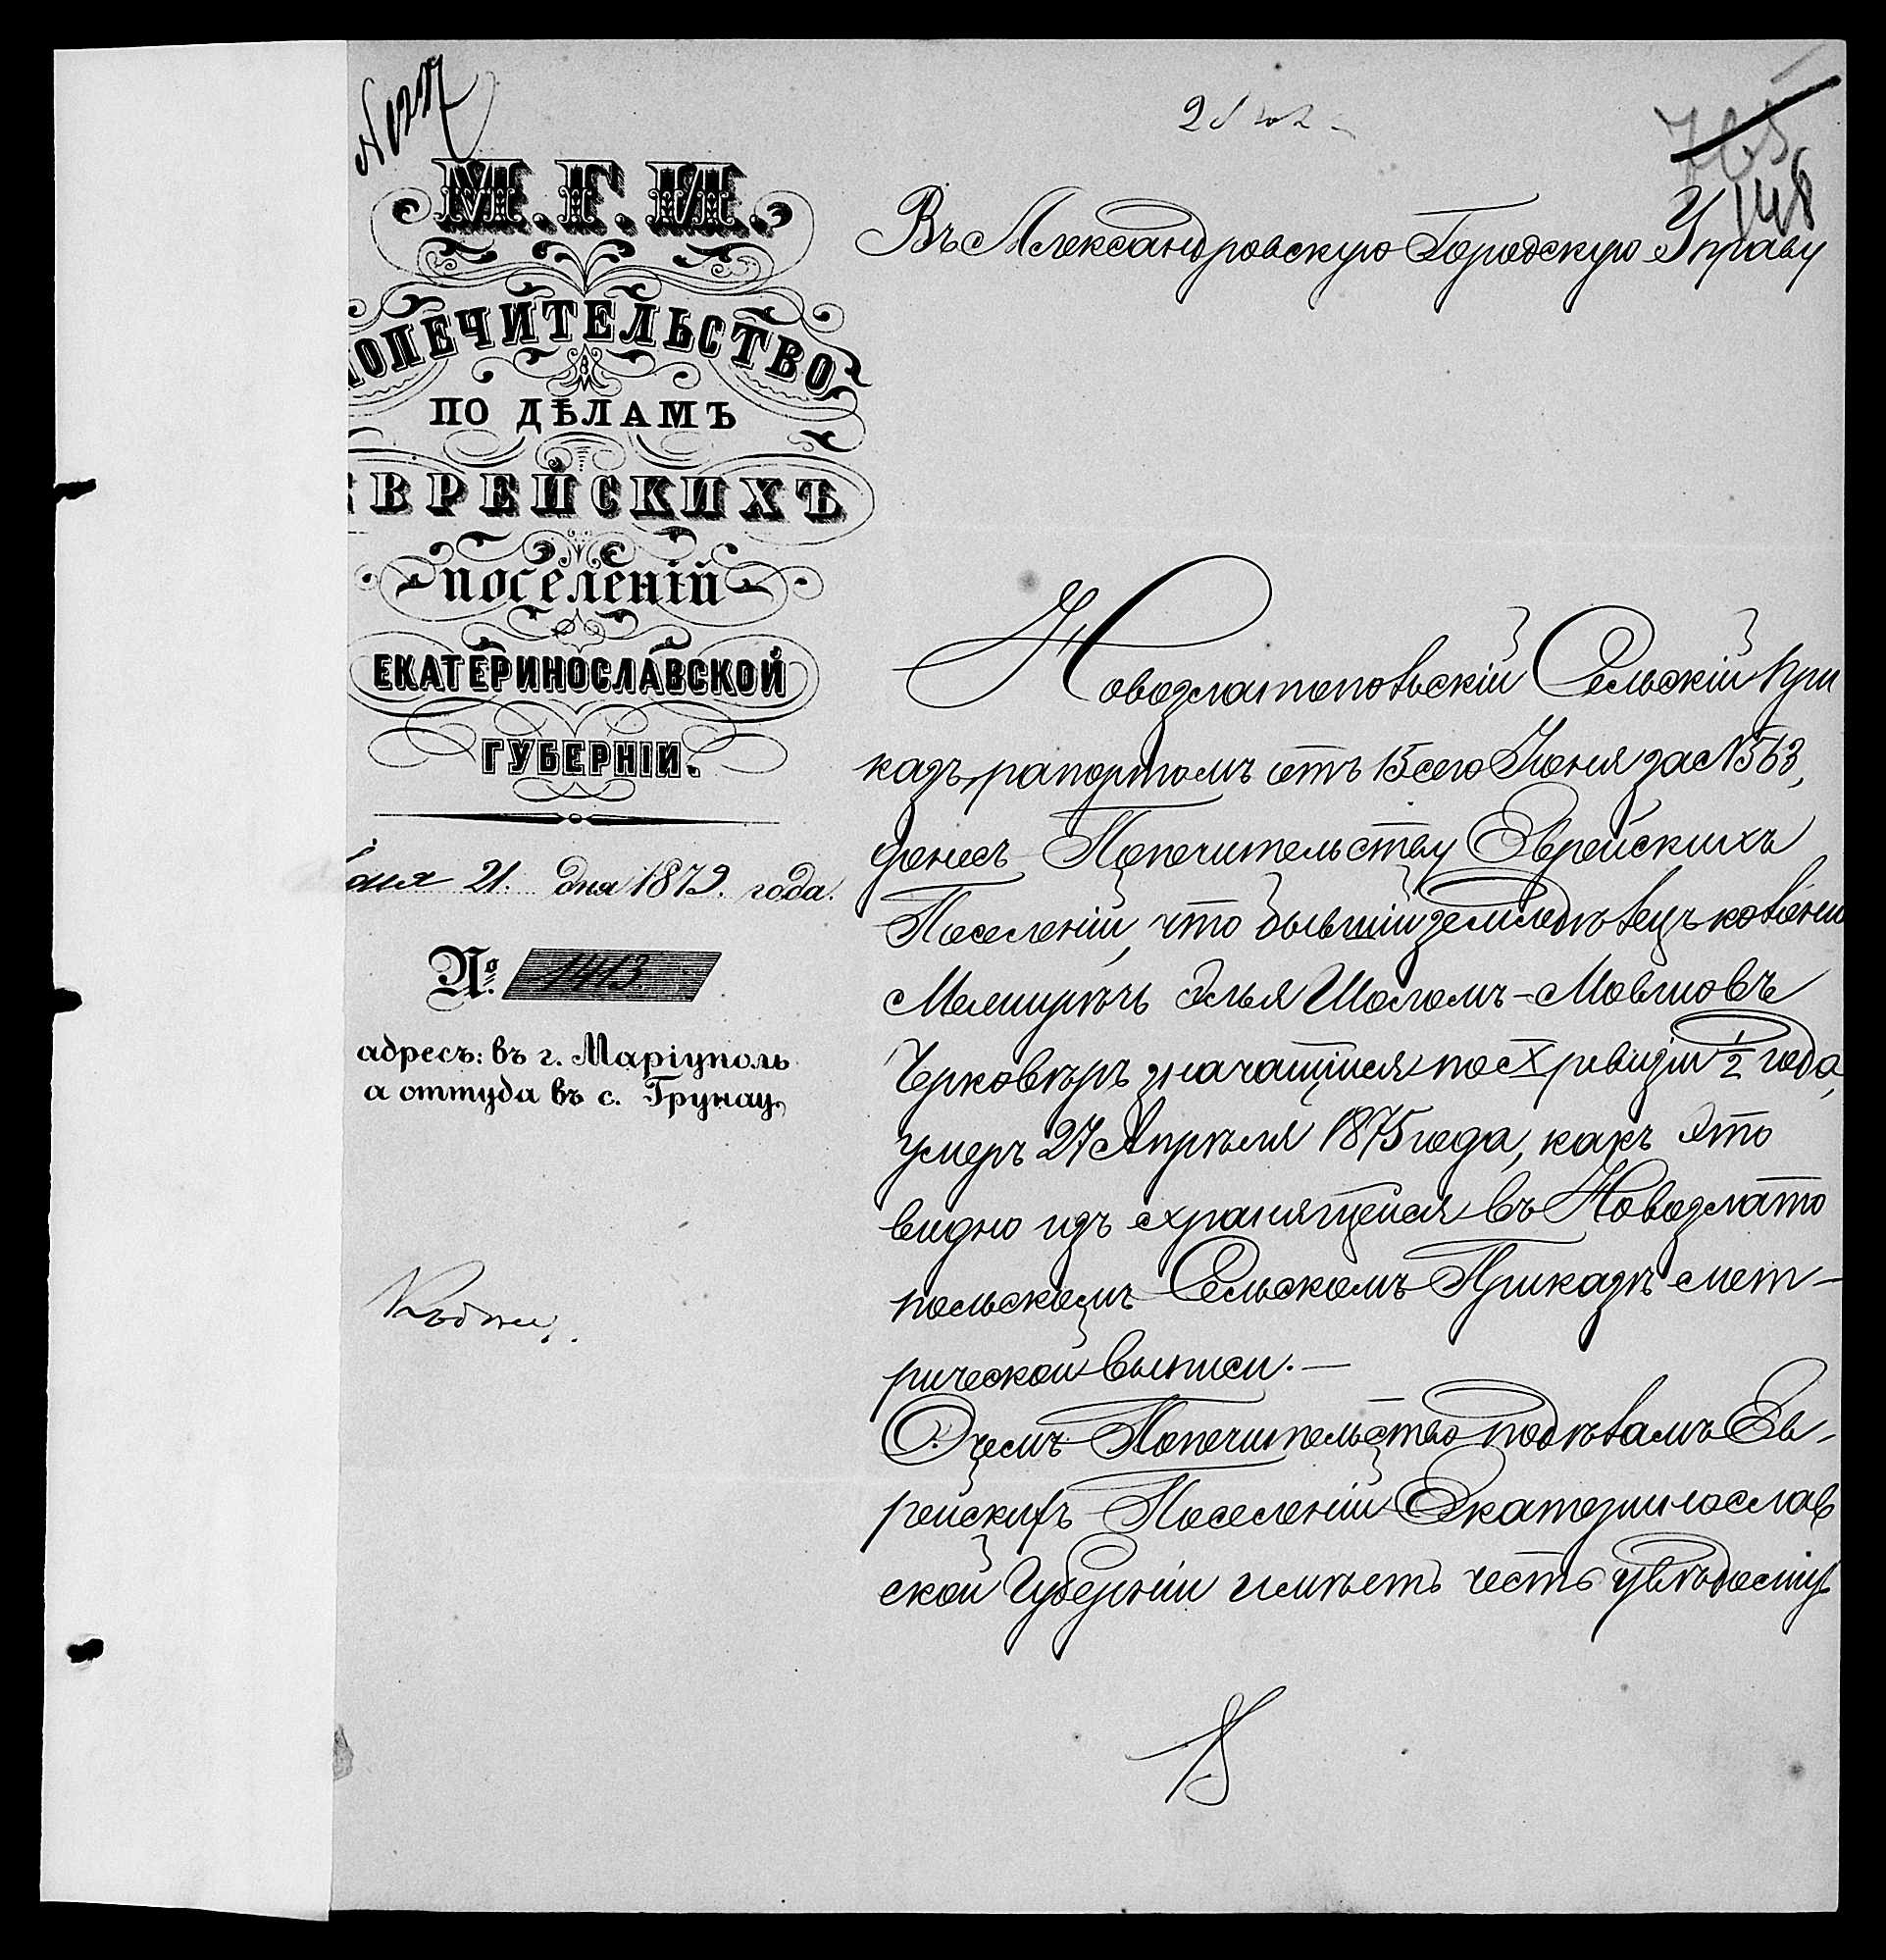 № 1227
148
М. Г. И.
ПОПЕЧИТЕЛЬСТВО
ПО ДѢЛАМЪ
ЕВРЕЙСКИХЪ
поселеній
ЕКАТЕРИНОСЛАВСКОЙ
ГУБЕРНІИ.
юня 21. дня 1879. года.
№ 1413
адресъ: въ г. Маріуполь
а оттуда въ с. Грунау.
Къ дѣлу.
Въ Александровскую Городскую Управу
Новозлатопольскій Сельскій При
казъ, рапортомъ отъ 15 сего Іюня за №563,
донесъ Попечительству Еврейскихъ
Поселеній, что бывшій земледѣлецъ колоніи
Элья Шоломъ-Мовшовъ
значащійся по X ревизіи ½ года,
умеръ 27 Апрѣля 1875 года, какъ это
видно изъ хранящейся въ Новозлато
польскомъ Сельскомъ Приказѣ мет-
рической выписи.—
О чемъ Попечительство по дѣламъ Ев-
рейскихъ Поселеній Екатеринослав
ской Губерніи имѣетъ честь увѣдомить